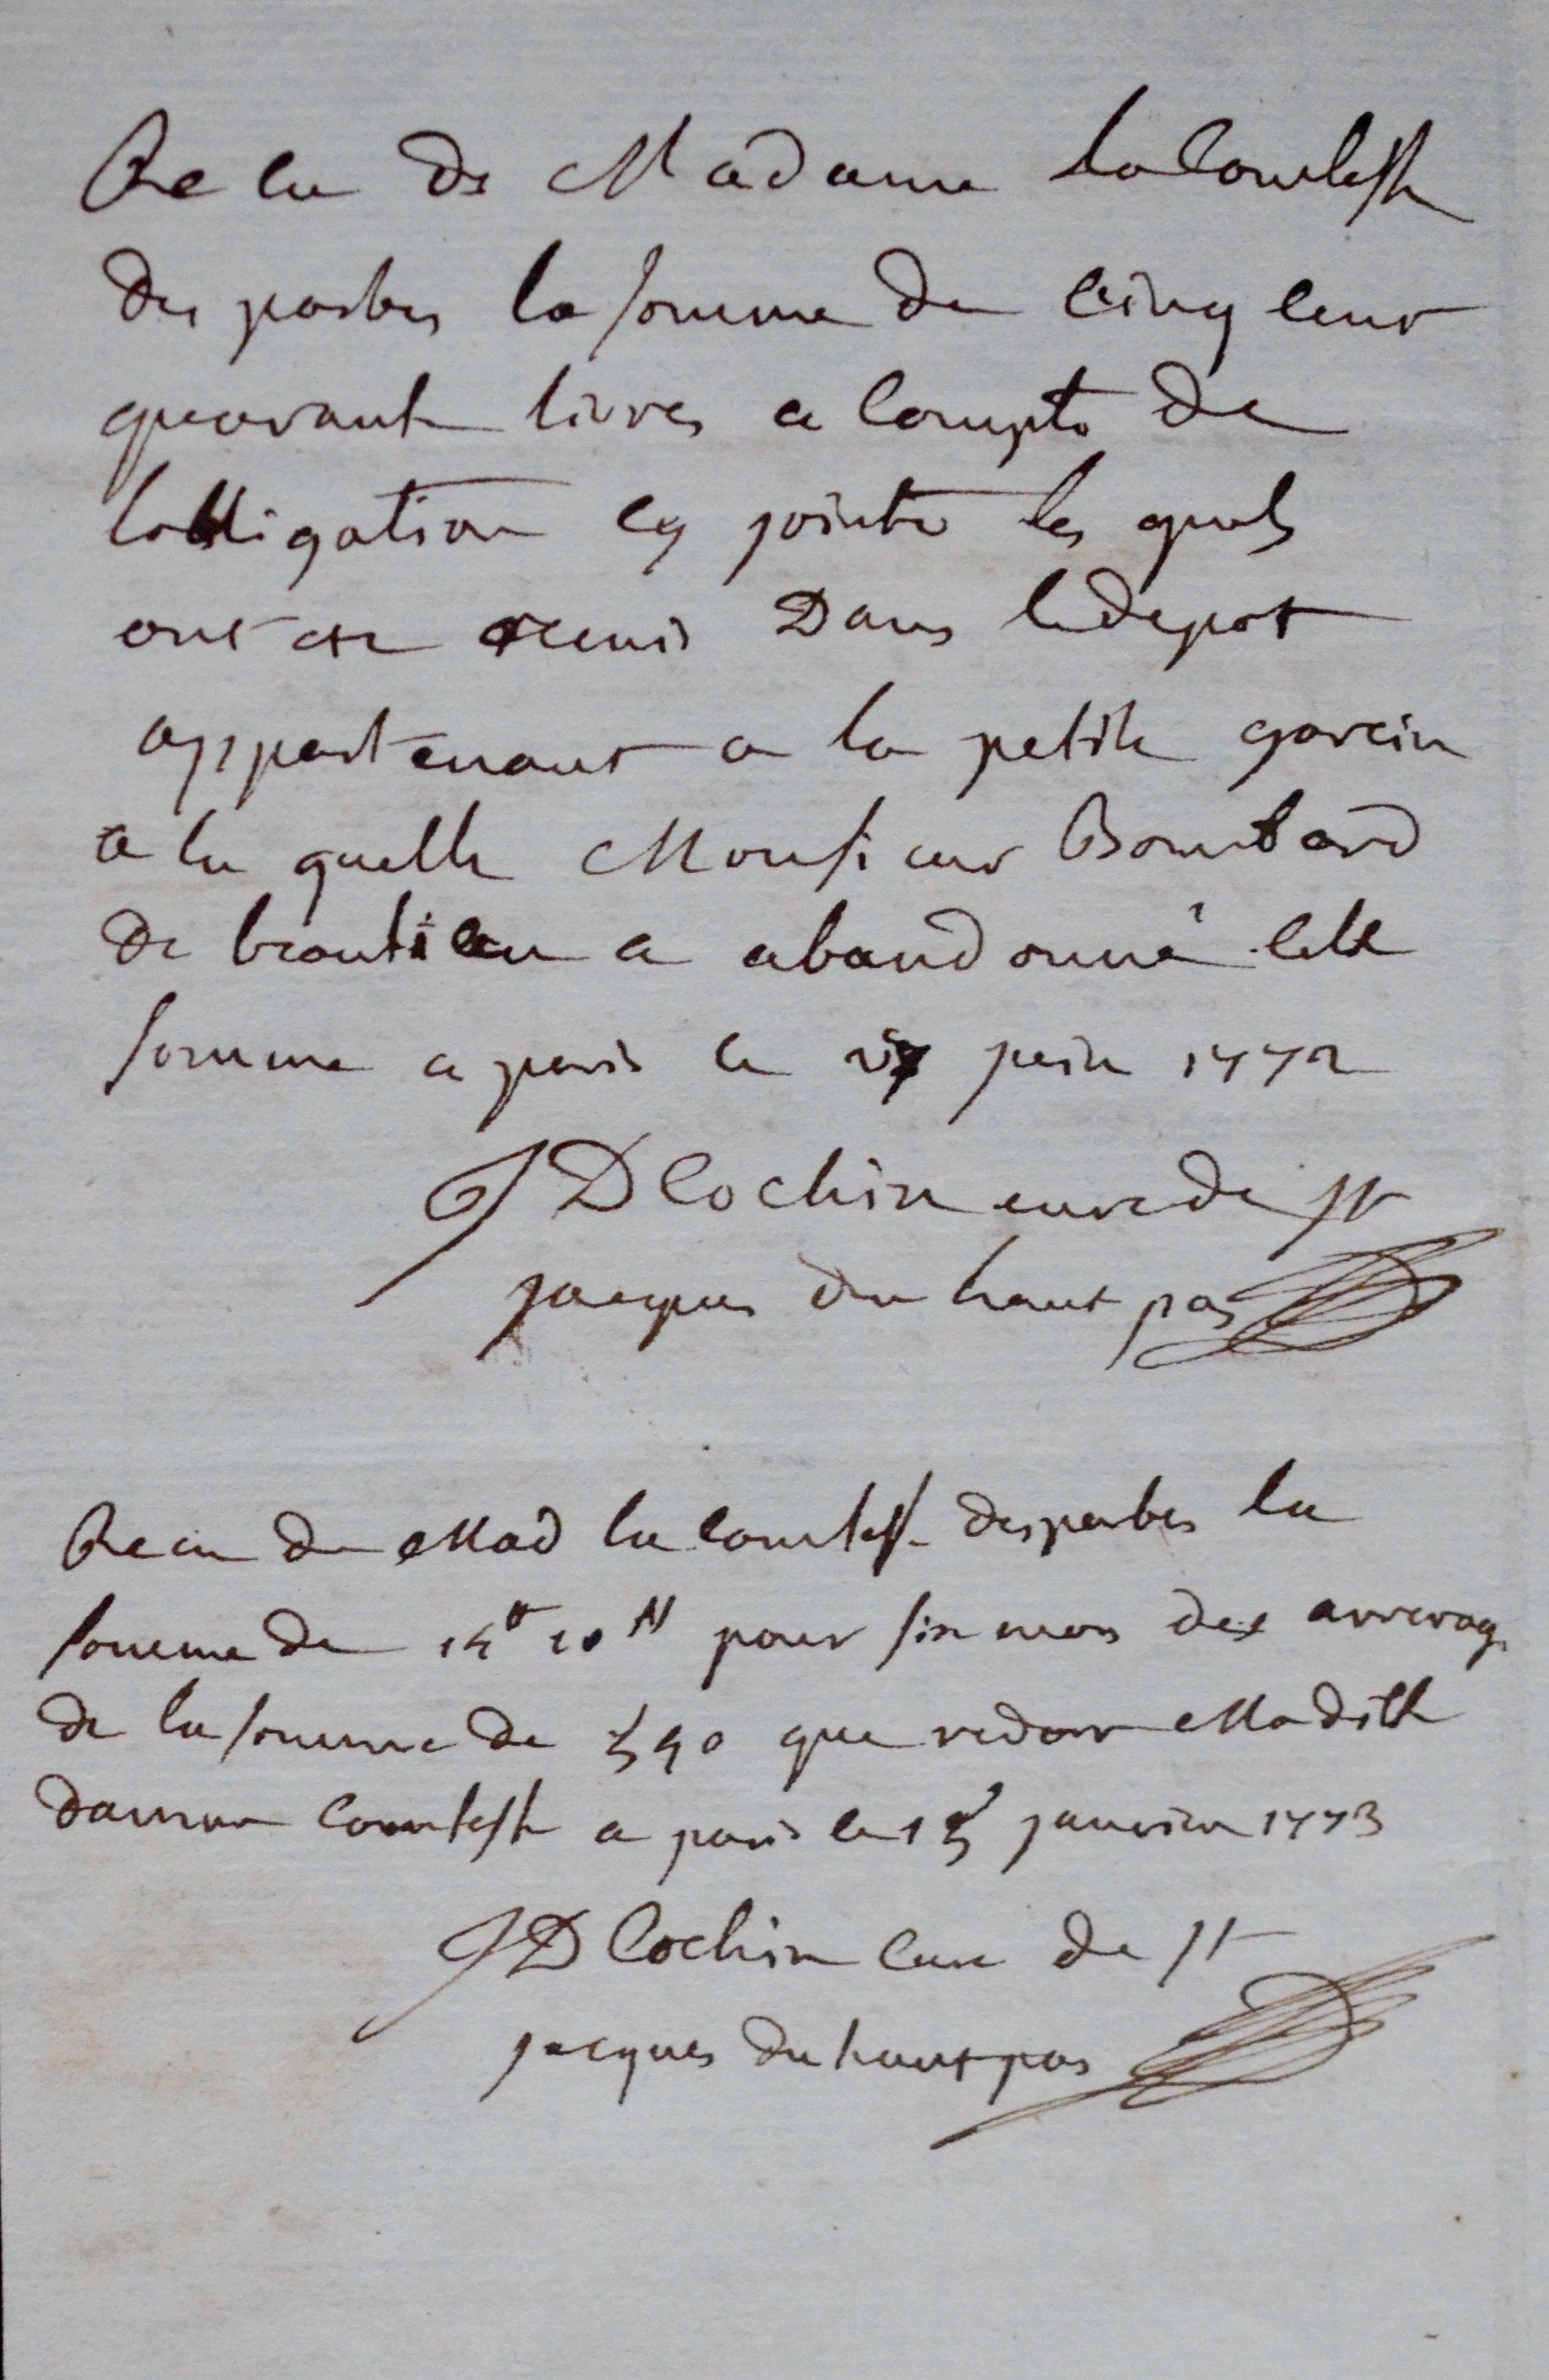 Recu de Madame la Comtesse
des parbes la somme de Cinq cent
quarante livres a Compte de
lobligation cy jointe les quels
ont ete remis Dans le depot
appartenant a la petite garcin
a la quelle Monsieur Bombard
de a abandonné cette
somme a paris le juin 1772
JD Cochin cure de st
jacques du haut pas
Recu de Mad la Comtess desparbes la
somme de pour six mois des arrerag
de la somme de 540 que redoit Madite
dame Comtesse a paris le 15 janvier 1773
JD Cochin Cure de st
jacques du haut pas